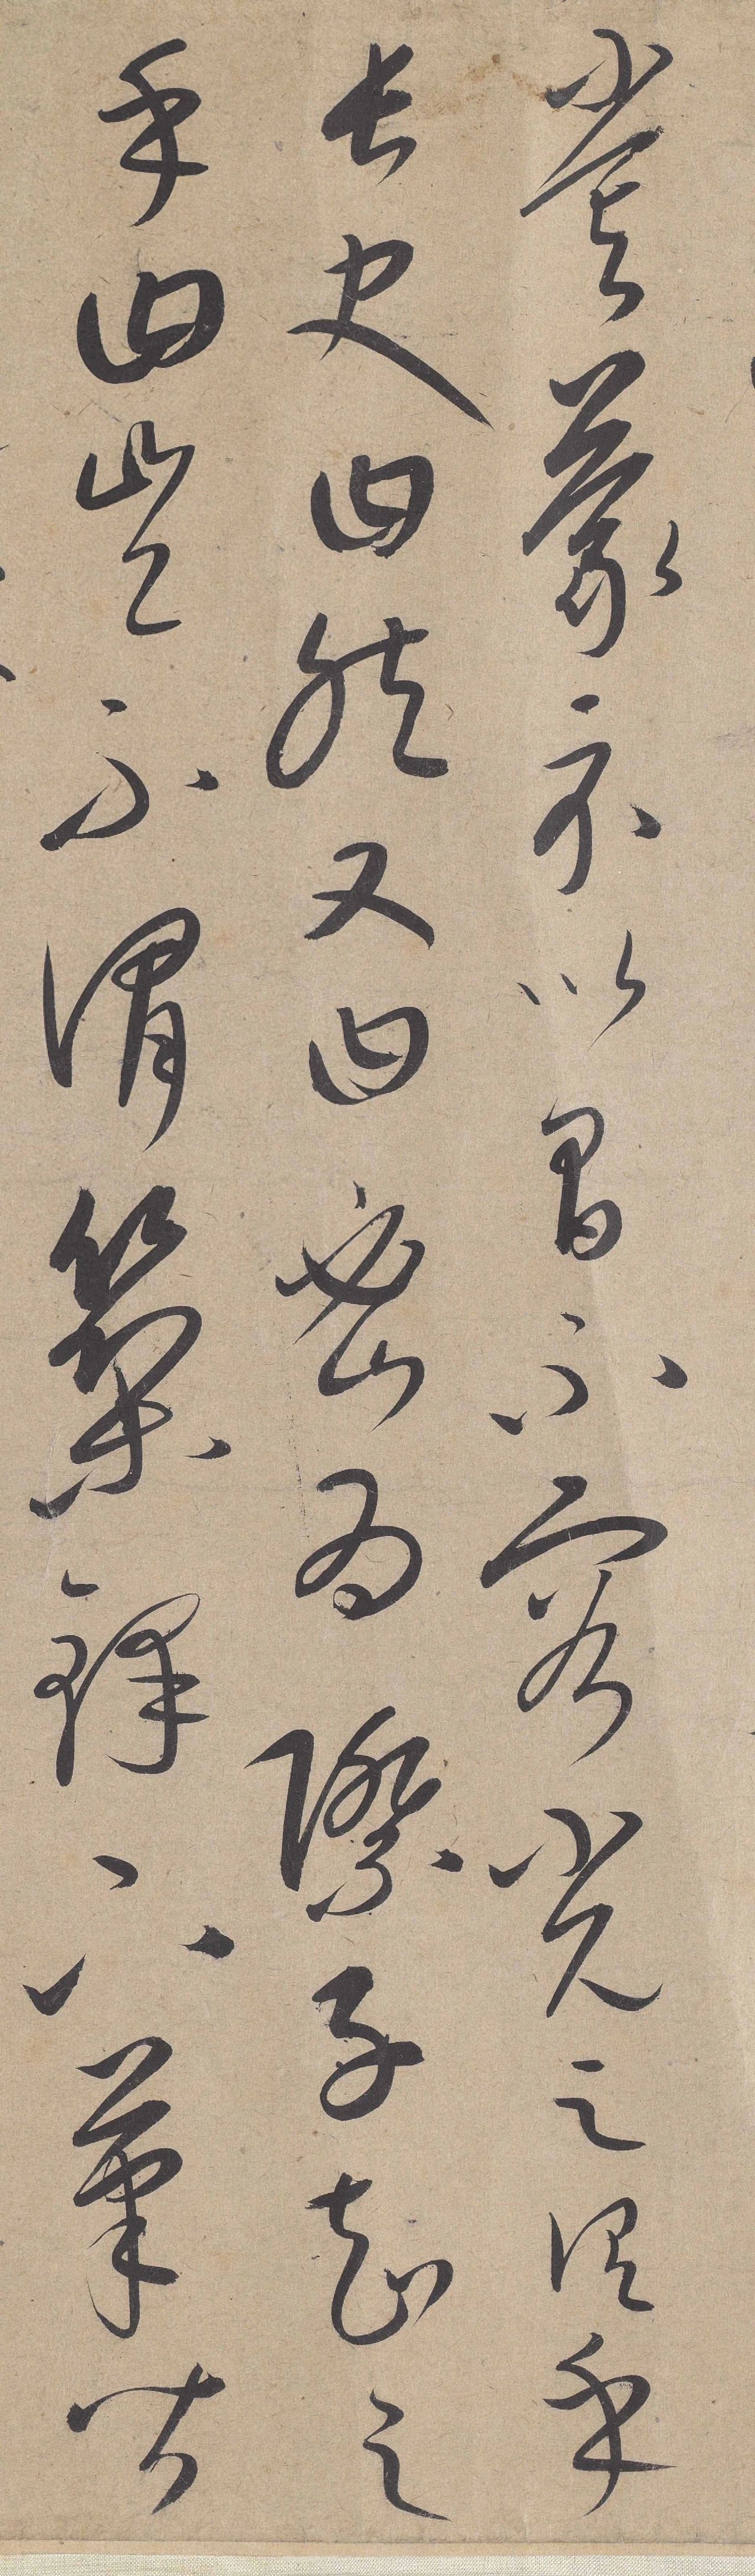 嘗蒙示以間不容光之謂乎
長史曰然又曰密為際子知之
乎曰豈不謂築鋒下筆皆